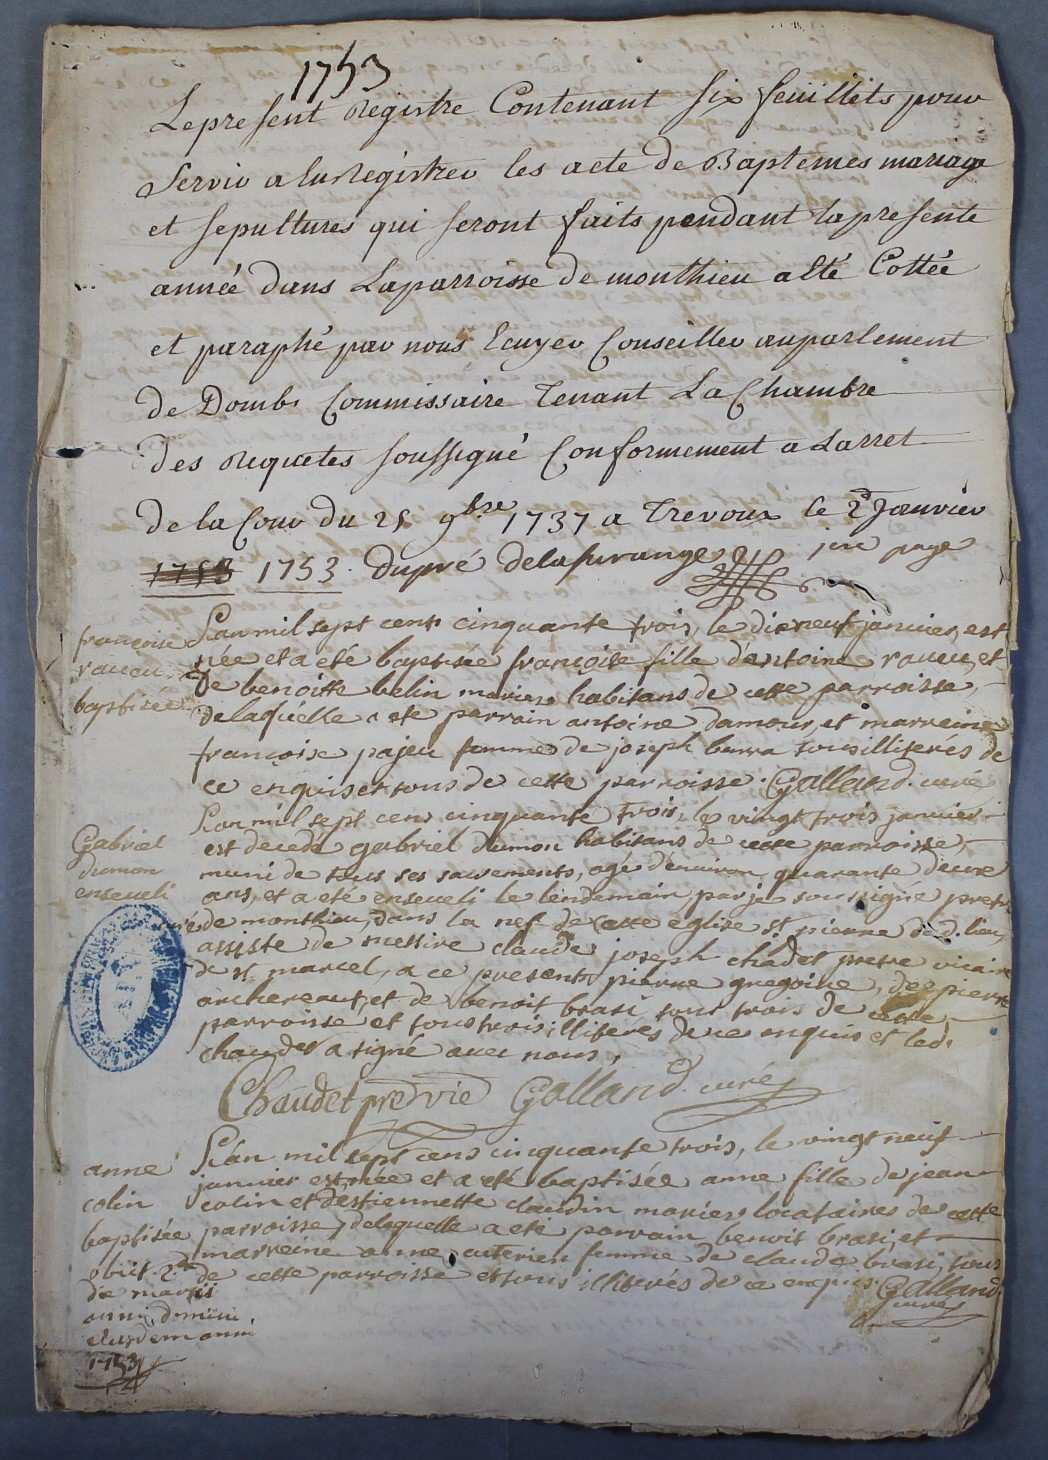 1753
Le present Registre Contenant six feuillets pour
Servir a Enregistrer les acte de Baptemes mariage
et sepultures qui seront faits pendant la presente
année dans Laparroisse de monthieu a Eté Cottée
et paraphé par nous Ecuyer Conseiller auparlement
de Dombs Commissaire Tenant La Chambre
Des Requetes soussigné Conformement a Larret
de la Cour du 25 9bre 1737 a Trevoux le 2d Janvier
1753 1753. Dupré Delasurange
1ere page
francoise
raveu
baptisée
L'an mil sept cent cinquante trois, le dixneuf janvier, est
née et a eté baptisée françoise fille d'antoine raveu, et
de benoitte belin mariers habitans de cette parroisse,
de laquelle a eté parrain antoine damour, et marreine
francoise pajeu femme de joseph barra tous illiterés de
ce enquis et tous de cette parroisse. Galland. curé
Gabriel
dumon
enseveli
L'an mil sept cens cinquante trois, le vingt trois janvier
est decedé gabriel dumon habitans de cette parroisse,
muni de tous ses sacrements, agé d'environ quarante deux
ans, et a eté enseveli le lendemain par je soussigné pretre
curé de monthieu, dans la nef de cette eglise st pierre de d. lieu,
assisté de messire claude joseph chadet pretre vicaire
de st. marcel, a ce present pierre gregoire, de pierre
archereaut, et de benoit brasi tous trois de cette
parroisse et tous trois illiteres de ce enquis et led.
chaudet a signé avec nous,
Chaudet pre vie Galland. curé
anne
colin
baptisée
obiit 2a
de martii
anni domini
ejusdem anni
1753
L'an mil sept cens cinquante trois, le vingt neuf
janvier est née et a eté baptisée anne fille de jean
colin et d'estiennette claudin mariers locataires de cette
parroisse, delaquelle a eté parrain benoit brasi, et
marreine anne auterien femme de claude brasi, tous
de cette parroisse et tous illiterés de ce enquis. Galland.
curé